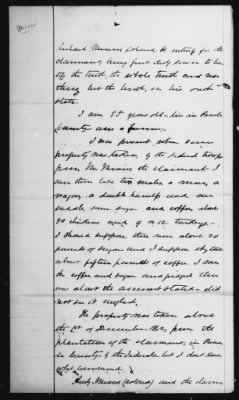 Means
Richard Means (colored) a witness for the
claimant, being first duly sworn to tell
the truth, the whole truth and nothing
but the truth, on his oath
states.
I am 58 years old - live in Panola
County am a farmer.
I was present when some
property was taken by the federal troops
from Means the claimant. I
saw them take two mules a mare, a
wagon, a double harness and one
saddle some sugar and coffee also
chickens and 9 or 12 turkeys.
I should suppose there were alone 50
pounds of sugar and I suppose
about fifteen pounds of coffee. I saw
the coffee and sugar and judged there
was about the amount stated - did
not see it weighed.
The property was taken about
the 1st of December 1862, from the
plantation of the claimant, in Panola
County by the federals but I don't know
what command.
Means (colored) and the claimant